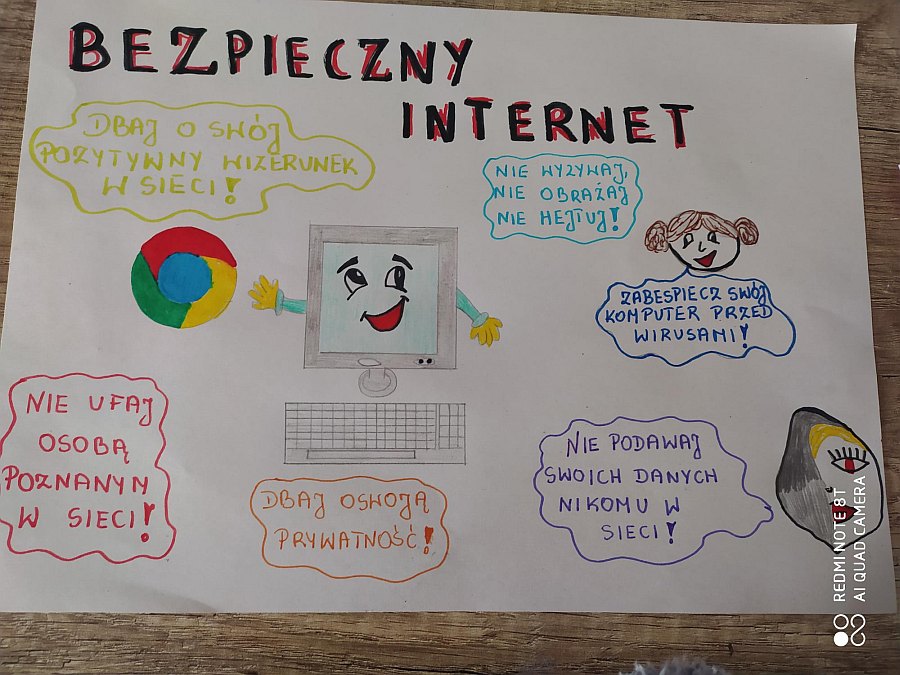 BEZPIECZNY
INTERNET
DBAJ O SWÓJ
POZYTYWNY WIZERUNEK
W SIECI!
NIE WYZYWAJ,
NIE OBRAŻAJ
NIE HEJTUJ!
ZABESPIECZ SWÓJ
KOMPUTER PRZED
WIRUSAMI!
NIE UFAJ
OSOBĄ
POZNANYM
W SIECI!
DBAJ OSWOJĄ
PRYWATNOŚĆ!
NIE PODAWAJ
SWOICH DANYCH
NIKOMU W
SIECI!
REDMI NOTE 8T
AI QUAD CAMERA